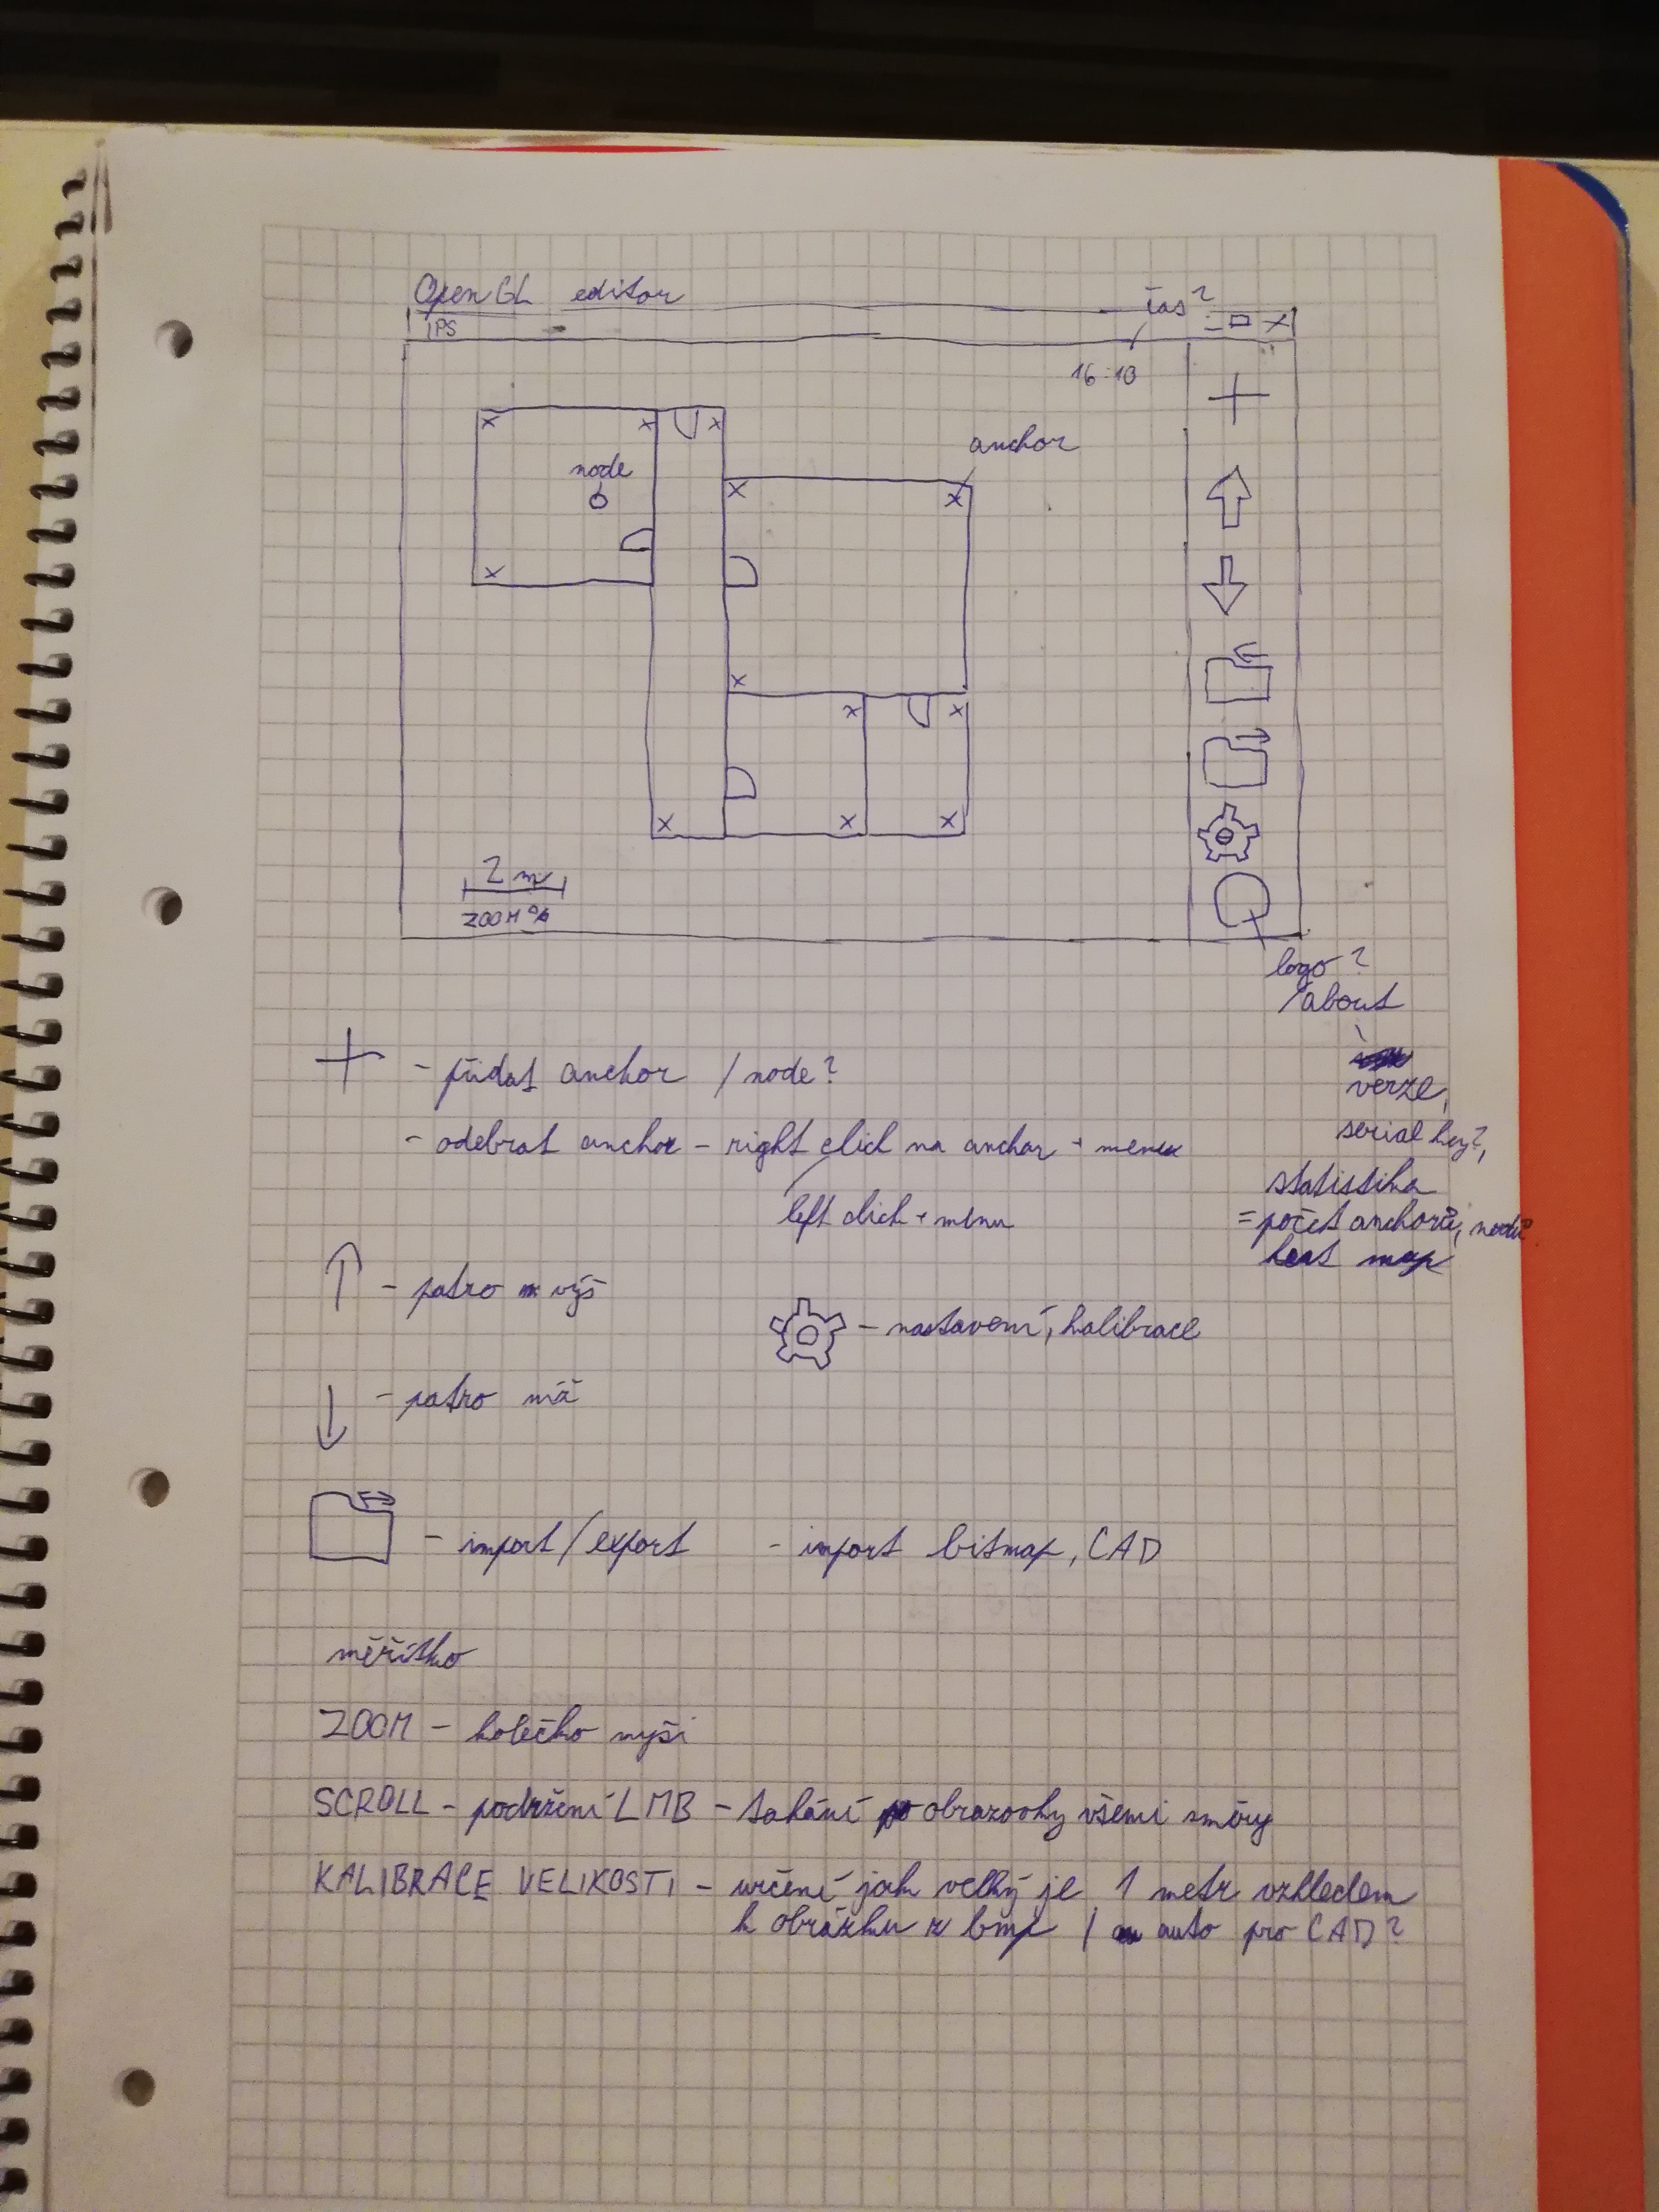 OpenGL editor
čas?
IPS
16:10
anchor
node
2 m
ZOOM %
logo?
/about
verze,
serial key?,
statistika
= počet anchorů, nodů
heat map
+ - přidat anchor / node?
- odebrat anchor - right click na anchor + menu
left click + menu
↑ - patro výš
- nastavení, kalibrace
↓ - patro níž
- import/export - import bitmap, CAD
měřítko
ZOOM - kolečko myši
SCROLL - podržení LMB - tahání obrazovky všemi směry
KALIBRACE VELIKOSTI - určení jak velký je 1 metr vzhledem
k obrázku z bmp / auto pro CAD?